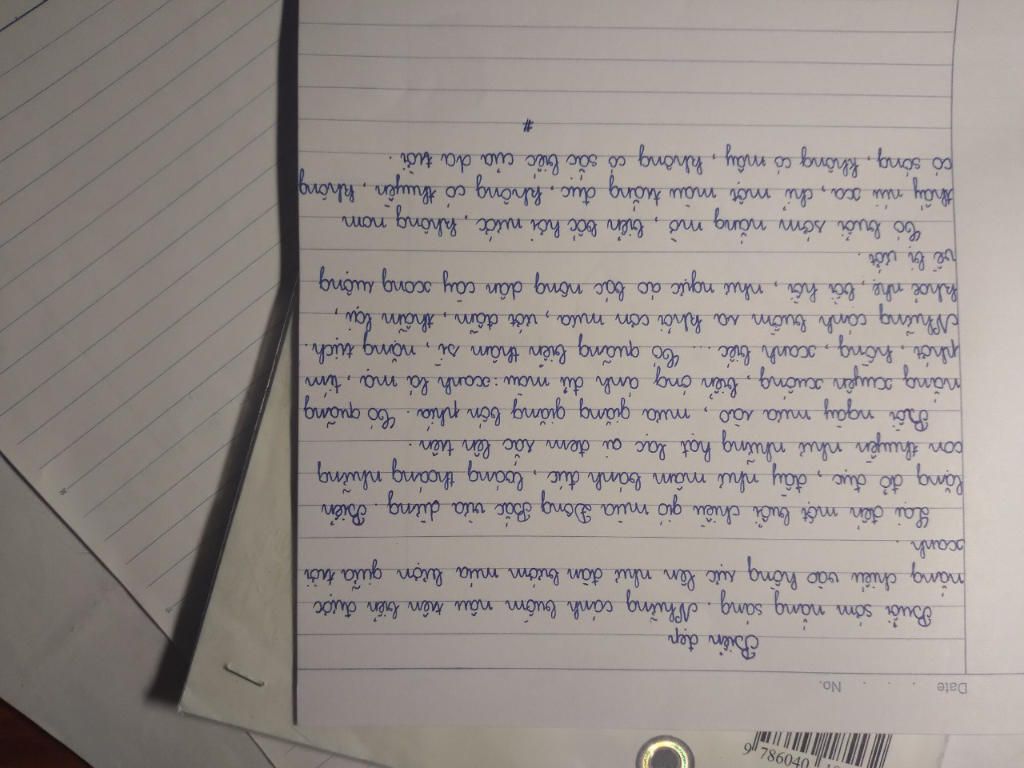 Date . . . . No.
Biển đẹp
Buổi sớm nắng sáng. Những cánh buồm nâu trên biển được
nắng chiếu vào hồng rực lên như đàn bướm múa lượn giữa trời
xanh.
Lại đến một buổi chiều gió mùa Đông Bắc vừa dừng. Biển
lặng đỏ đục, đầy như mâm bánh đúc, loáng thoáng những
con thuyền như những hạt lạc ai đem rắc lên trên.
Rồi ngày mưa rào, mưa giăng giăng bốn phía. Có quãng
nắng xuyên xuống, biển óng ánh đủ màu: xanh lá mạ, tím
phớt, hồng, xanh biếc... Có quãng biển thâm sì, nặng trịch.
Những cánh buồm ra khỏi cơn mưa, ướt đẫm, thẫm lại,
khoẻ nhẹ, bồi hồi, như ngực áo bác nông dân cày xong ruộng
về bị ướt.
Có buổi sớm nắng mờ, biển bốc hơi nước, không nom
thấy núi xa, chỉ một màu trắng đục, không có thuyền, không
có sóng, không có mây, không có sắc biếc của da trời.
#
9 786040